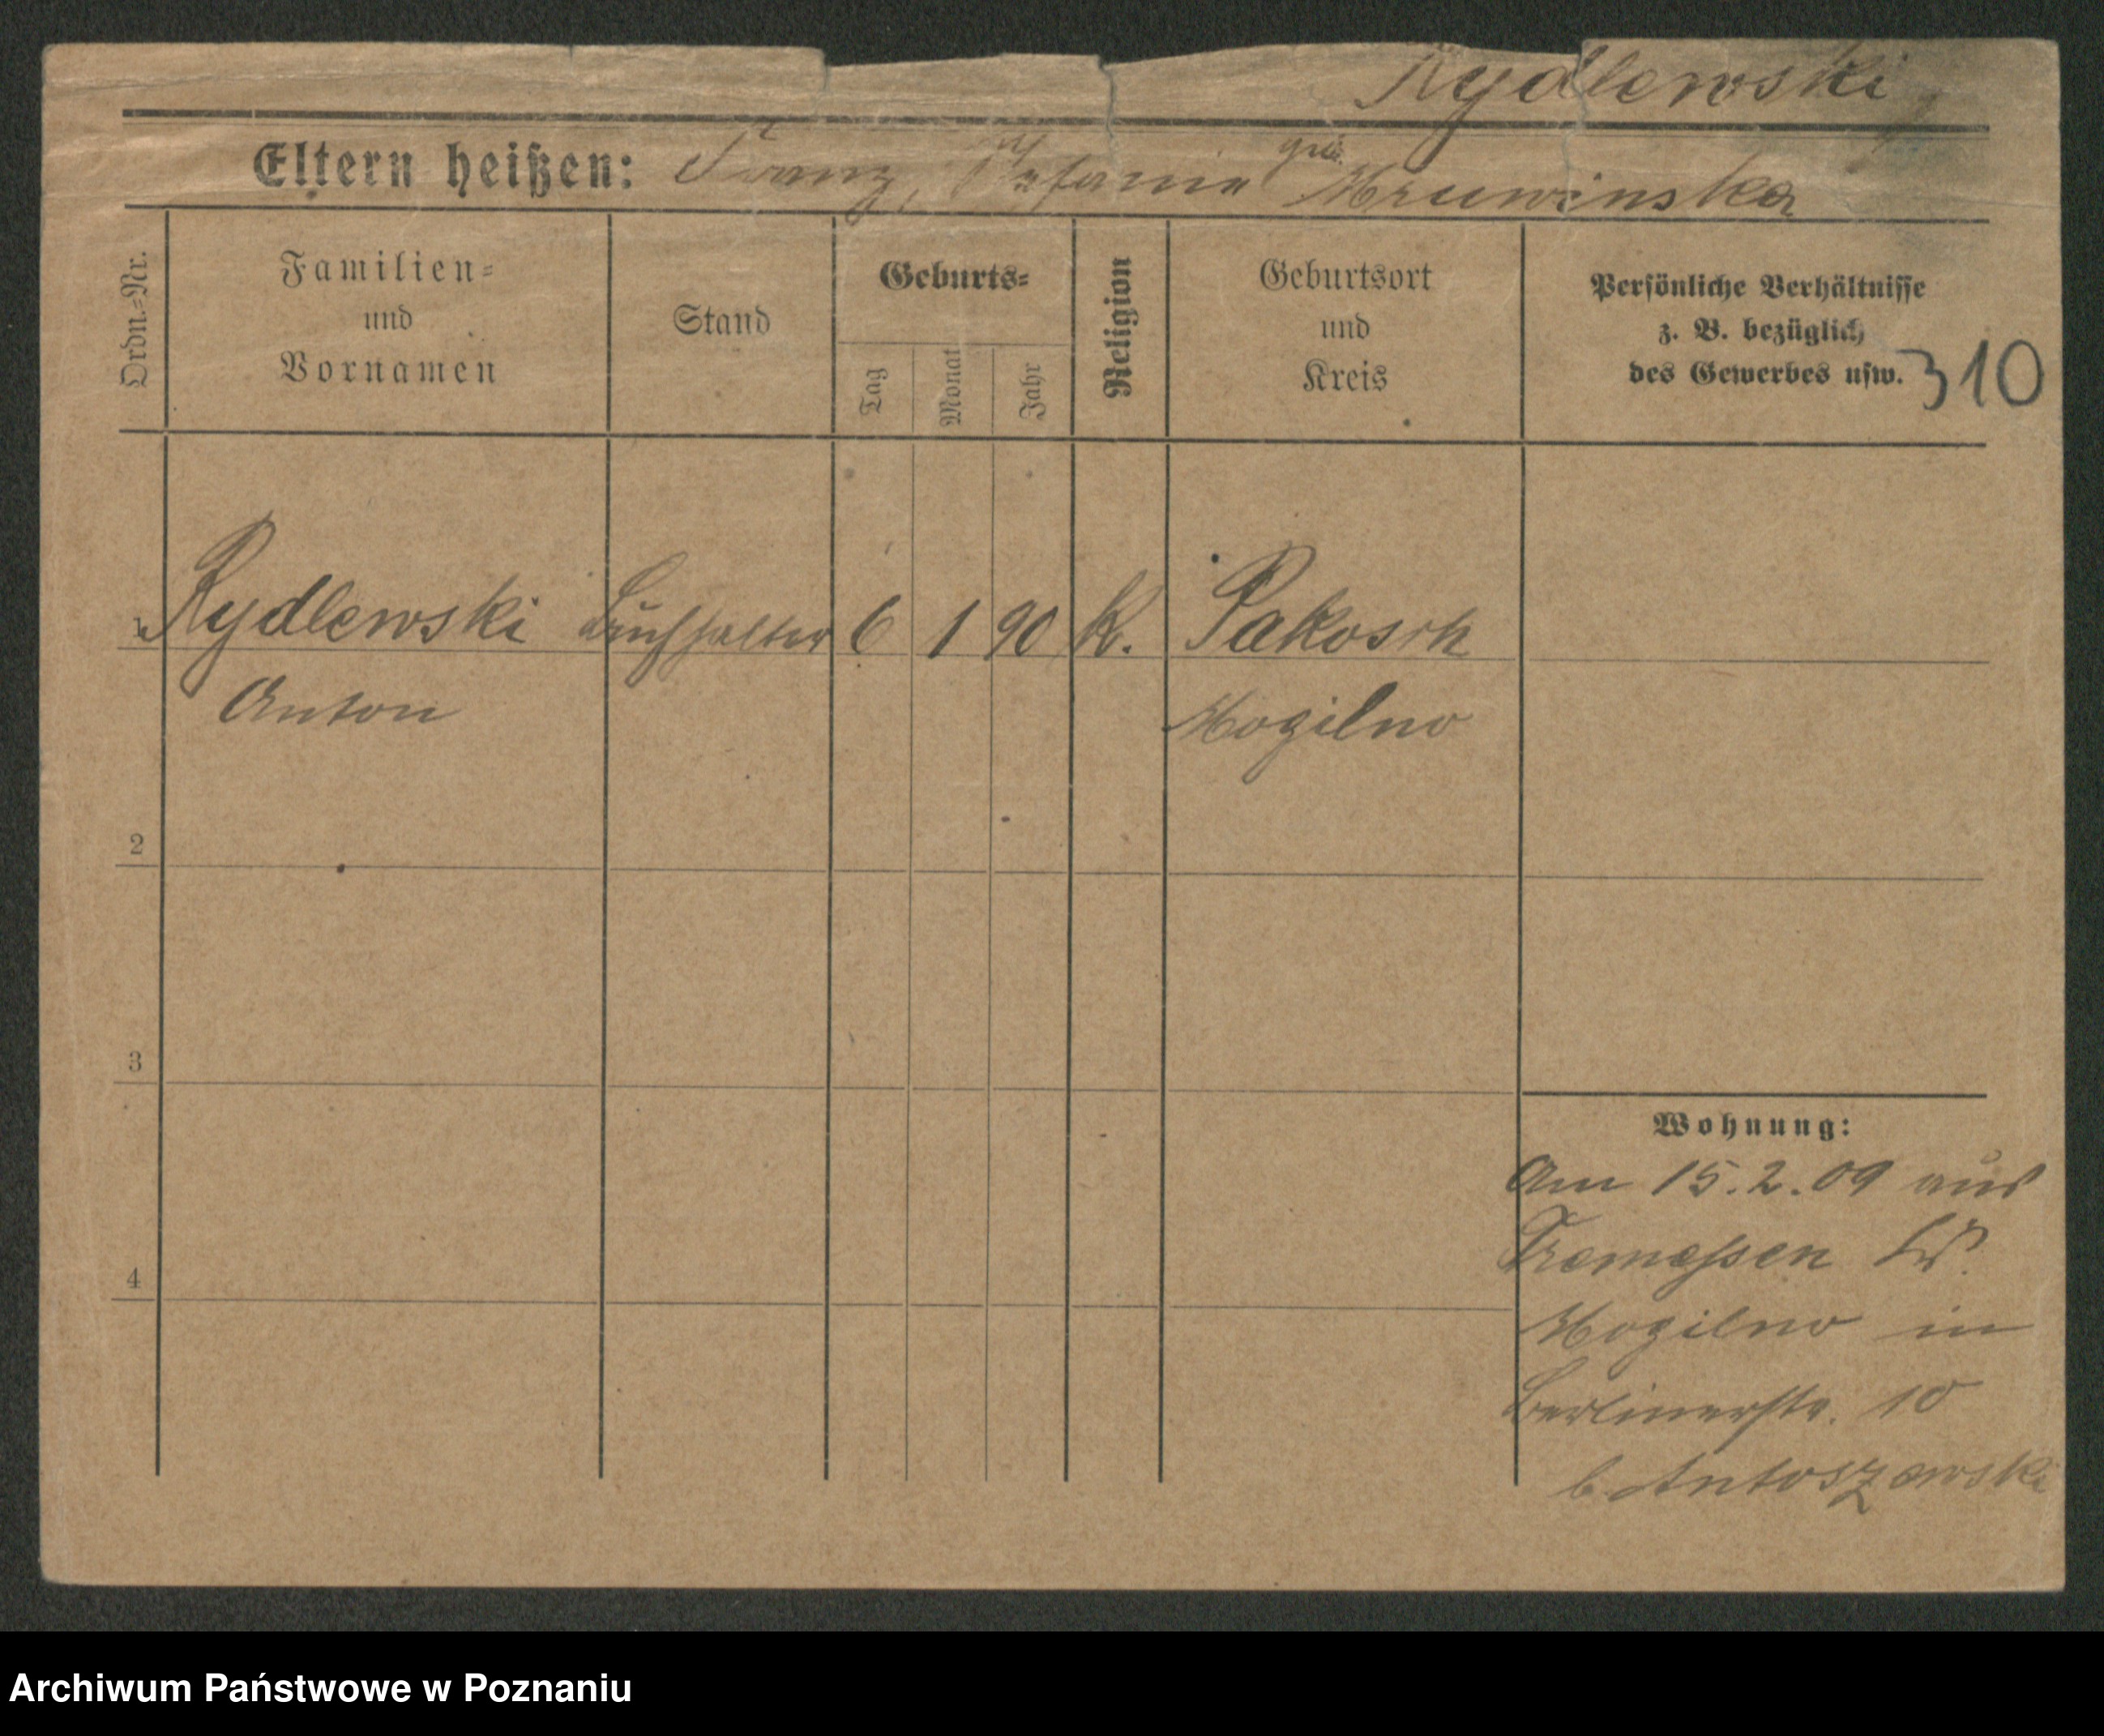 Rydlewski
Eltern heißen: Franz, Stefania geb. Mruwinska
Ordn.=Nr.
Familien=
und
Vornamen
Stand
Geburts=
Tag
Monat
Jahr
Religion
Geburtsort
und
Kreis
Persönliche Verhältnisse
z. B. bezüglich
des Gewerbes usw.
310
1 Rydlewski Buchhalter 6 1 90 K. Pakosch
Anton Mogilno
2
3
4
Wohnung:
Am 15.2.09 aus
Tremessen Kr.
Mogilno in
Berlinerstr. 10
b. Antoszewski
Archiwum Państwowe w Poznaniu